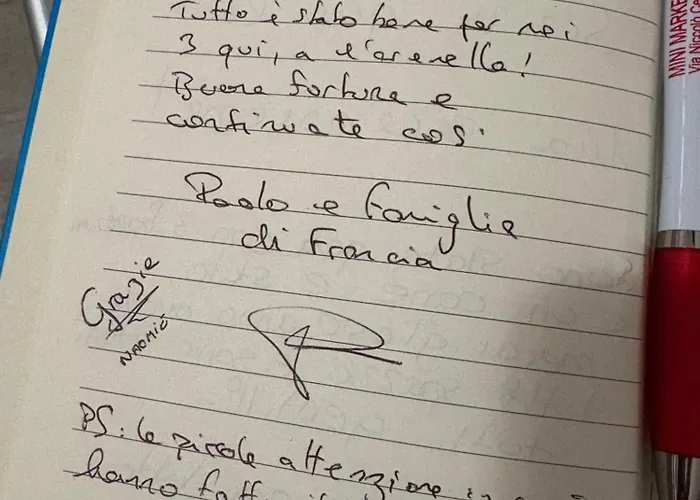 Tutto è stato bene per noi
3 qui, a l'arenella!
Buona fortuna e
continuate così
Paolo e Famiglia
di Francia
Grazie
NAOMIE
PS: le piccole attenzione
hanno fatt
MINI MARKE
Via Niccolò Ce